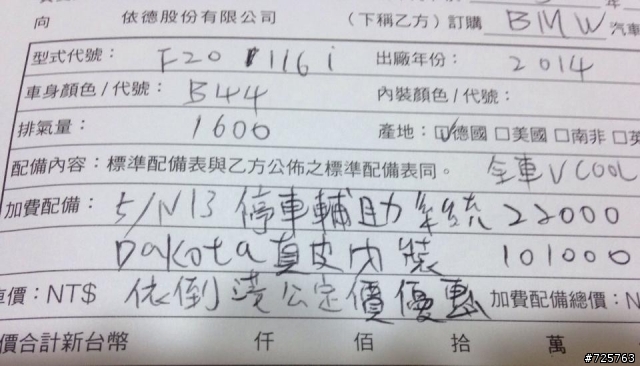 向 依德股份有限公司 (下稱乙方)訂購 BMW 汽車
型式代號: F20 116i 出廠年份: 2014
車身顏色/代號: B44 內裝顏色/代號:
排氣量: 1600 產地: ☑德國 □美國 □南非 □英
配備內容:標準配備表與乙方公佈之標準配備表同。 全車 V COOL
加費配備: 5/N13 停車輔助系統 22000
Dakota 真皮內裝 101000
車價:NT$ 依 公定價優惠 加費配備總價:N
價合計新台幣 仟 佰 拾 萬
#725763